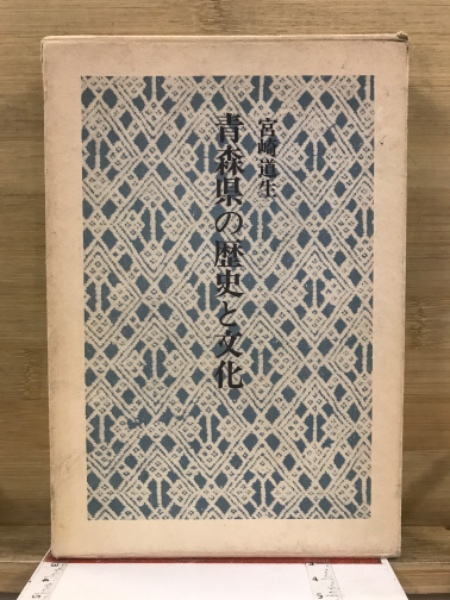 宮崎道生
青森県の歴史と文化